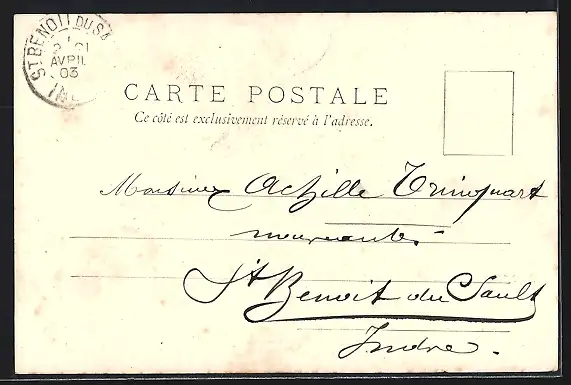 ST BENOIT DU SA
AVRIL
03
CARTE POSTALE
Ce côté est exclusivement réservé à l'adresse.
Monsieur Achille Trinquart
St Benoit du Sault
Indre.